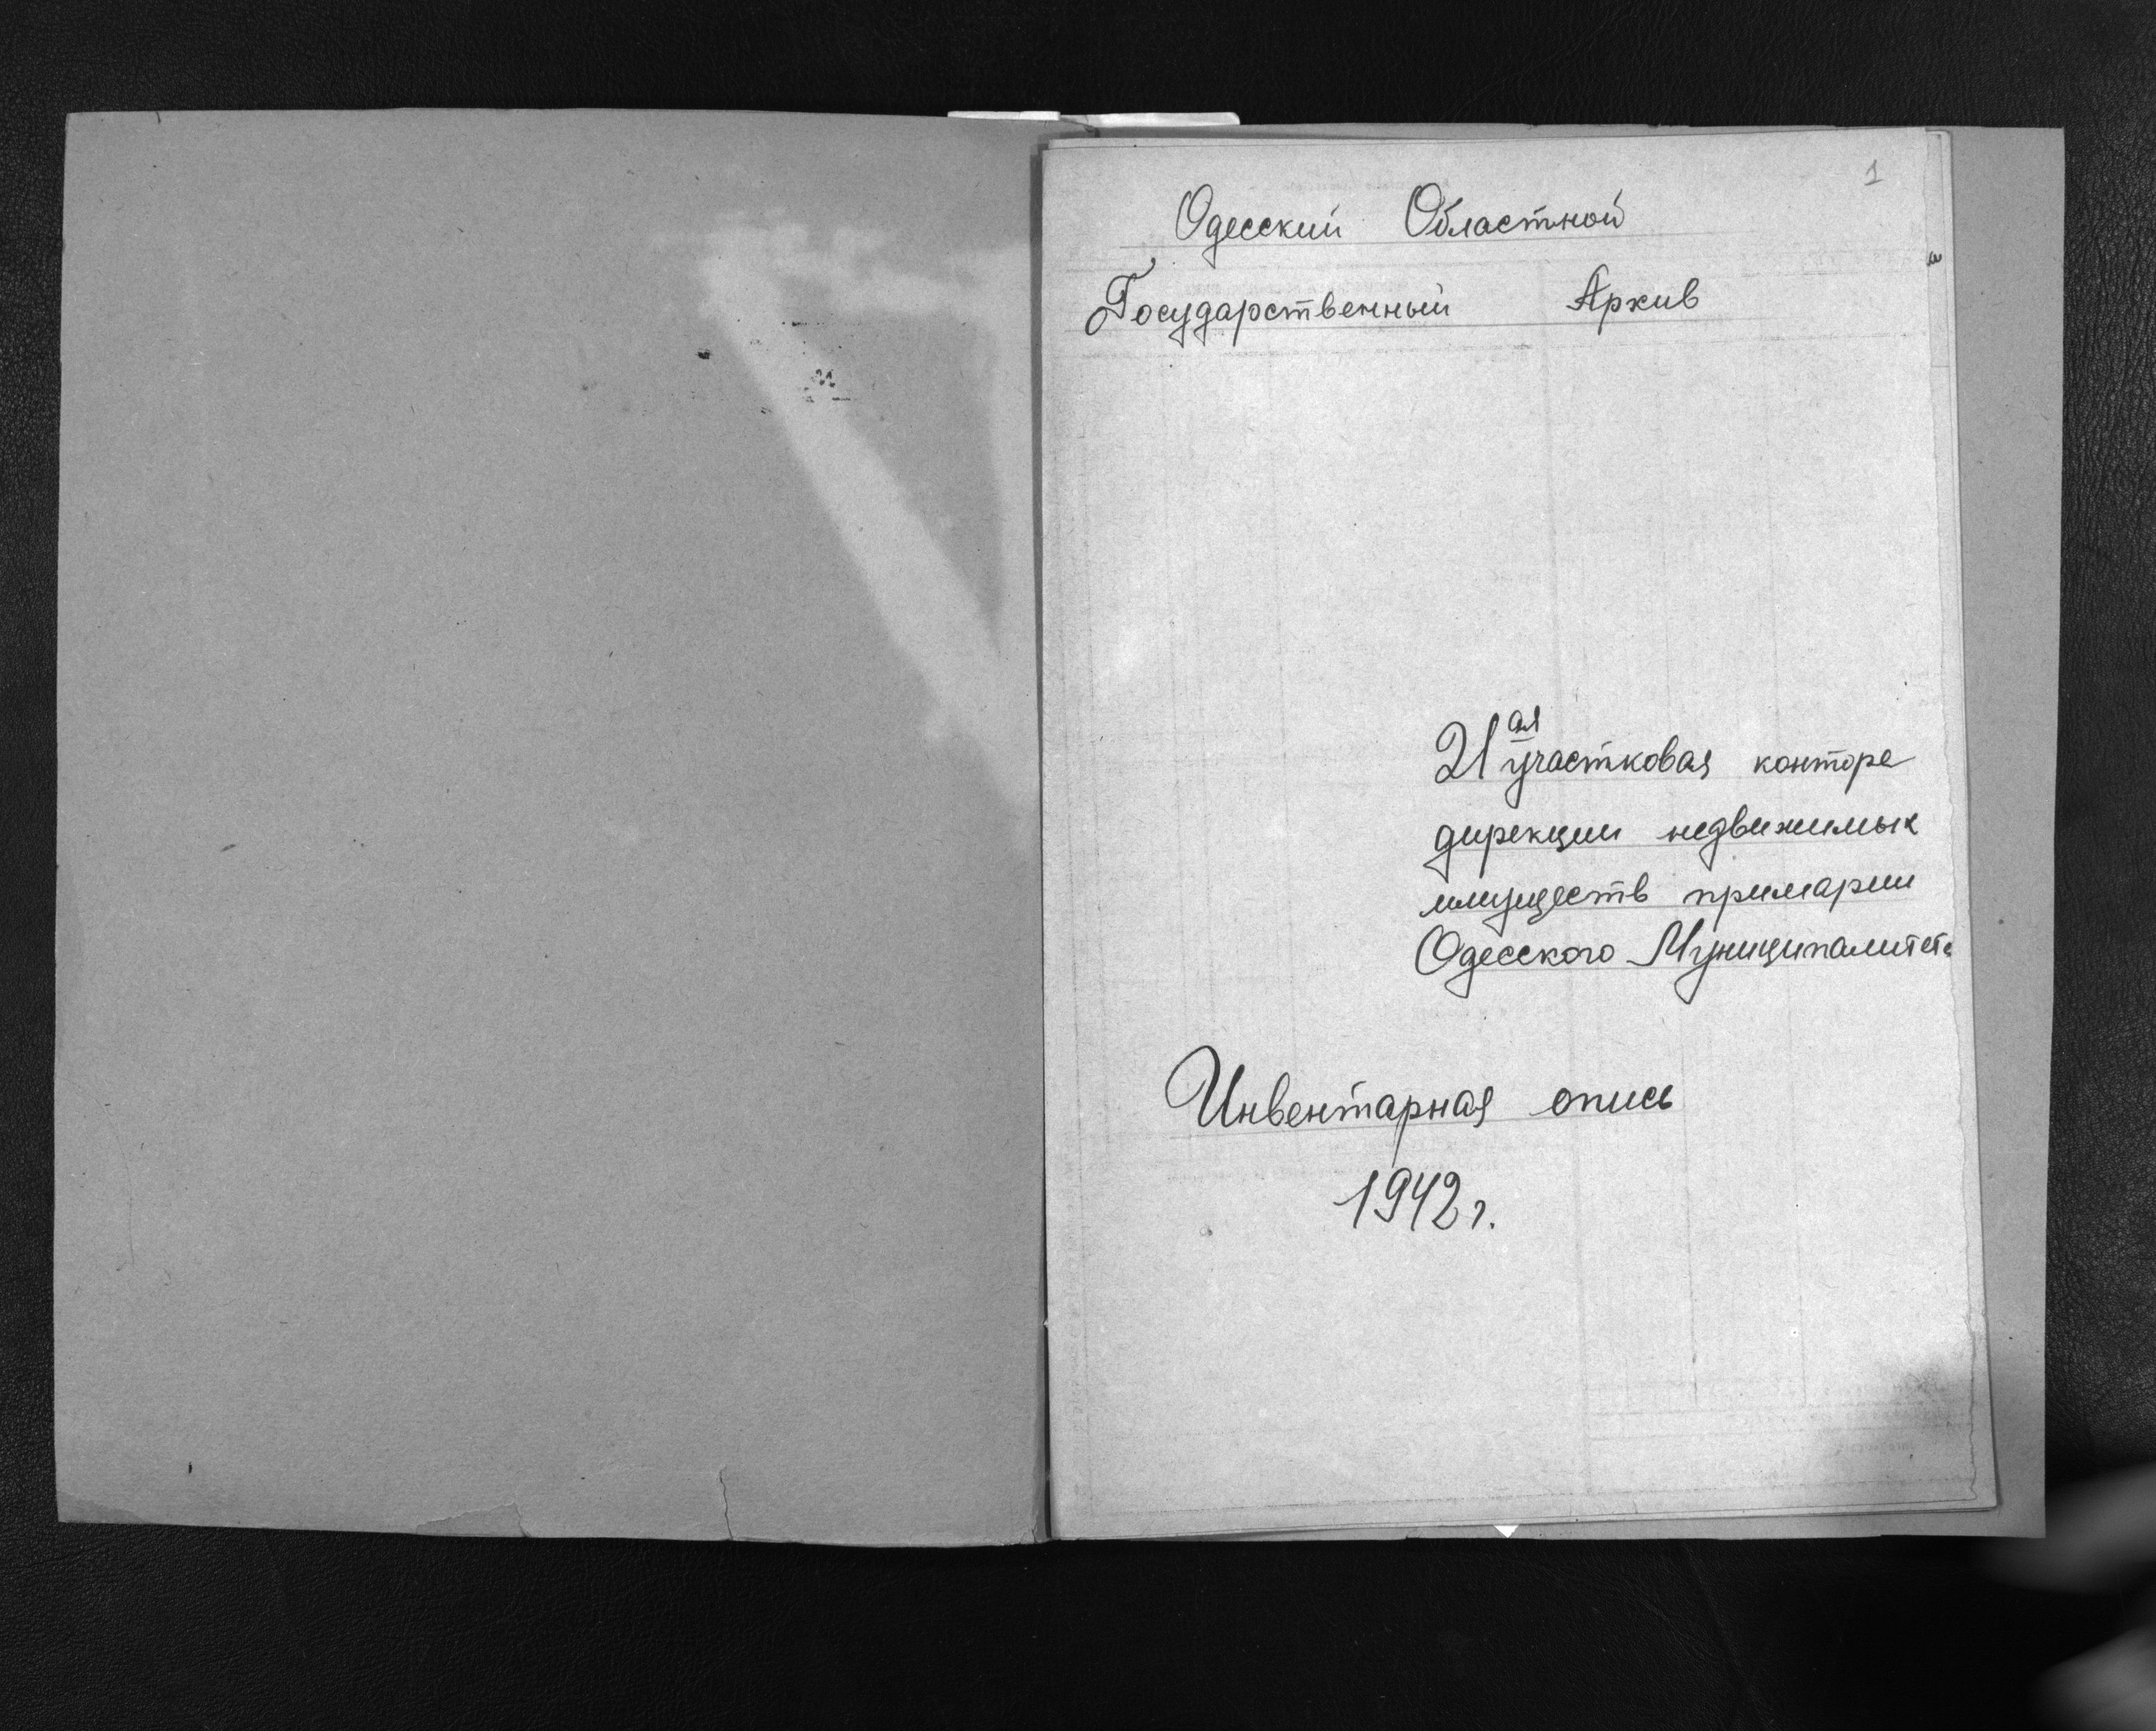 1
Одесский Областной
Государственный Архив
21ая участковая контора
дирекции недвижимых
имуществ примарии
Одесского Муниципалитета
Инвентарная опись
1942 г.